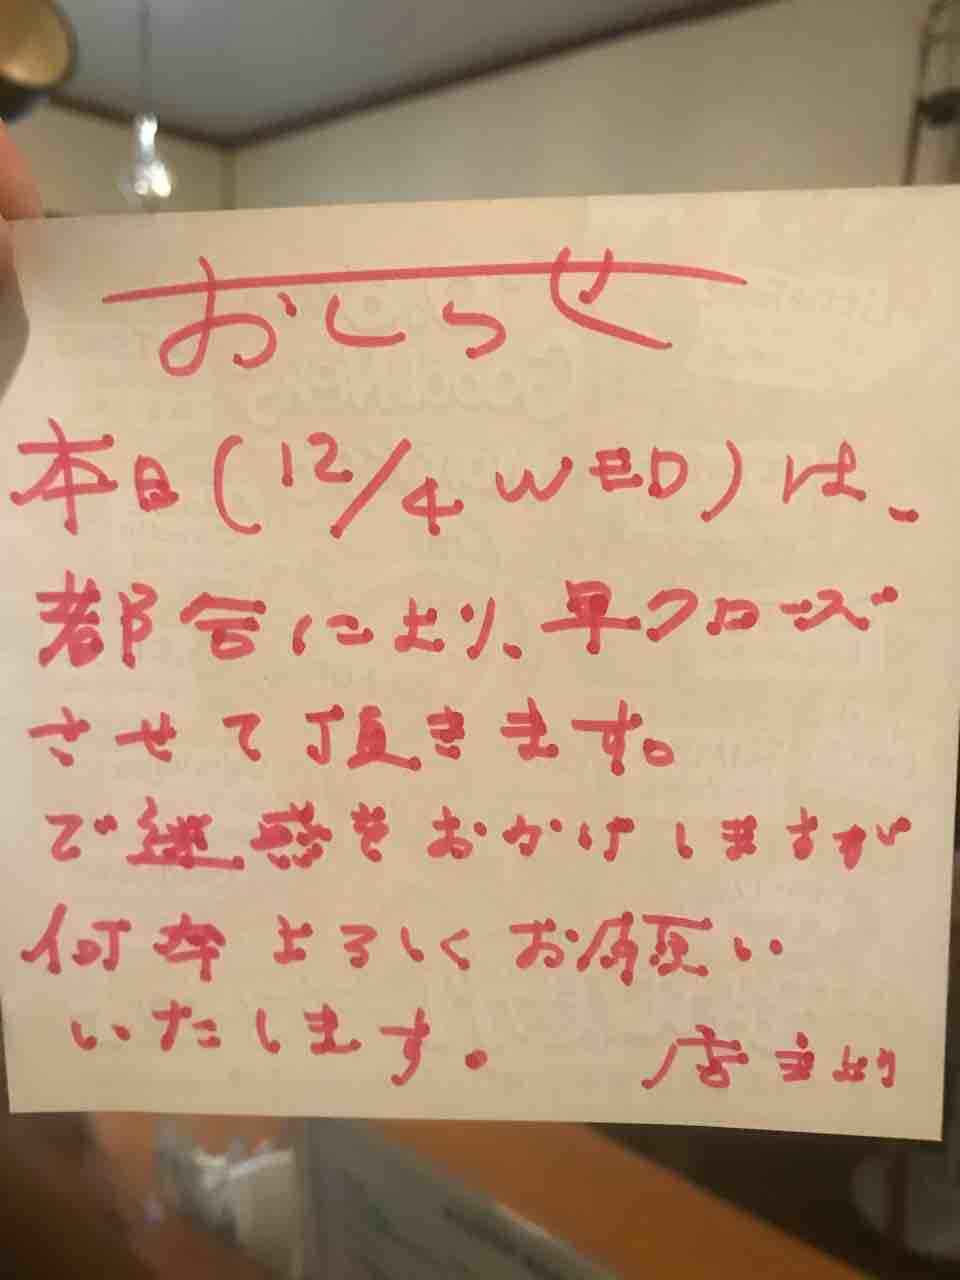 おしらせ
本日(12/4 WED)は、
都合により、早クローズ
させて頂きます。
ご迷惑をおかけしますが
何卒よろしくお願い
いたします。
店主より